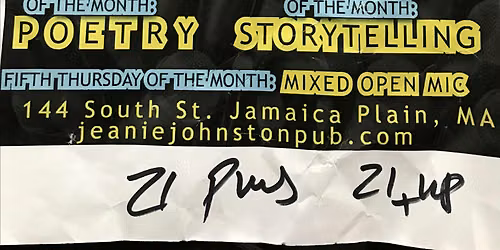 OF THE MONTH: OF THE MONTH:
POETRY STORYTELLING
FIFTH THURSDAY OF THE MONTH: MIXED OPEN MIC
144 South St. Jamaica Plain, MA
jeaniejohnstonpub.com
21 Plus 21+up